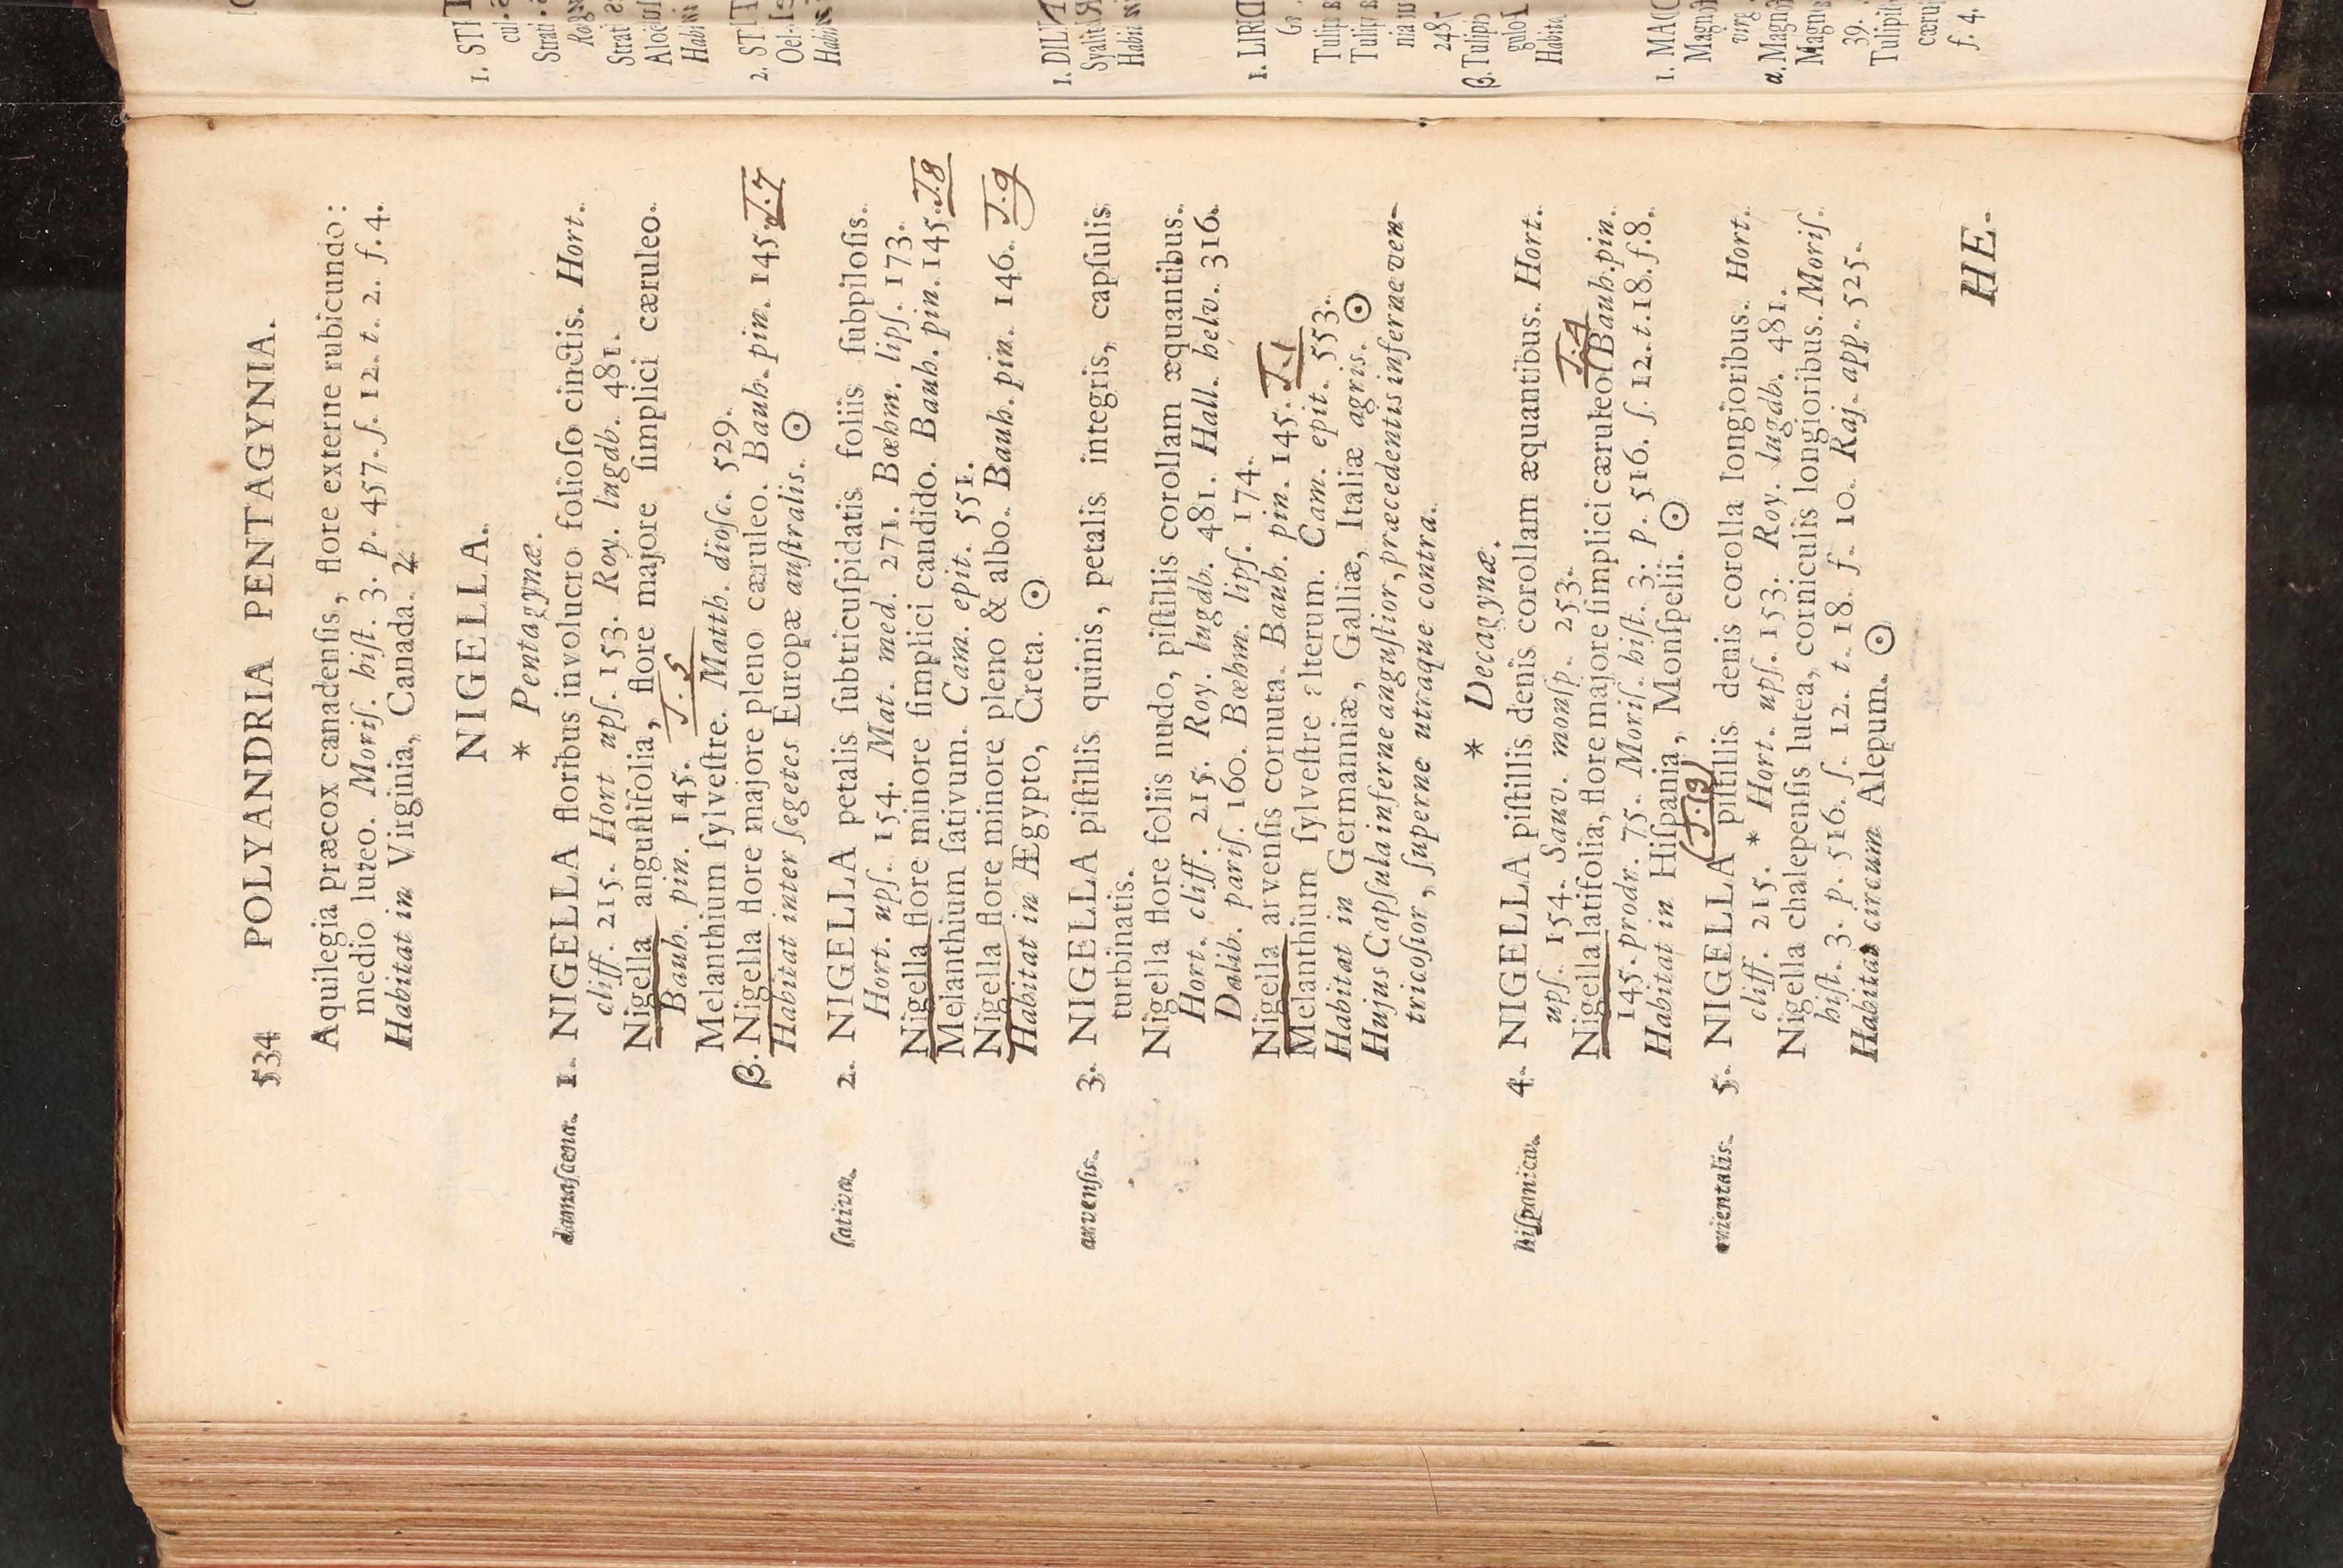 534 POLYANDRIA PENTAGYNIA.
Aquilegia præcox canadenſis, flore externe rubicundo:
medio luteo. Moriſ. hiſt. 3. p. 457. ſ. 12. t. 2. f. 4.
Habitat in Virginia, Canada. ♃
NIGELLA.
* Pentagynæ.
damaſcena. 1. NIGELLA floribus involucro folioſo cinctis. Hort.
cliff. 215. Hort upſ. 153. Roy. lugdb. 481.
Nigella anguſtifolia, flore majore ſimplici cæruleo.
Bauh. pin. 145. T. 5
Melanthium ſylveſtre. Matth. dioſc. 529.
β. Nigella flore majore pleno cæruleo. Bauh. pin. 145. T. 7
Habitat inter ſegetes Europæ auſtralis. ☉
ſativa. 2. NIGELLA petalis ſubtricuſpidatis foliis ſubpiloſis.
Hort. upſ. 154. Mat. med. 271. Bœhm. lipſ. 173.
Nigella flore minore ſimplici candido. Bauh. pin. 145. T. 8
Melanthium ſativum. Cam. epit. 551.
Nigella flore minore pleno & albo. Bauh. pin. 146. T. 9
Habitat in Ægypto, Creta. ☉
arvenſis. 3. NIGELLA piſtillis quinis, petalis integris, capſulis
turbinatis.
Nigella flore foliis nudo, piſtillis corollam æquantibus.
Hort. cliff. 215. Roy. lugdb. 481. Hall. helv. 316.
Dalib. pariſ. 160. Bœhm. lipſ. 174.
Nigella arvenſis cornuta. Bauh. pin. 145. T. 1
Melanthium ſylveſtre alterum. Cam. epit. 553.
Habitat in Germanniæ, Galliæ, Italiæ agris. ☉
Hujus Capſula inferne anguſtior, præcedentis inferne ven-
tricoſior, ſuperne utraque contra.
* Decagynæ.
hiſpanica. 4. NIGELLA piſtillis denis corollam æquantibus. Hort.
upſ. 154. Sauv. monſp. 253.
Nigella latifolia, flore majore ſimplici cæruleo. T. 4 Bauh. pin.
145. prodr. 75. Moriſ. hiſt. 3. p. 516. ſ. 12. t. 18. f. 8.
Habitat in Hiſpania, Monſpelii. ☉
orientalis. 5. NIGELLA piſtillis denis corolla longioribus. Hort.
cliff. 215. * Hort. upſ. 153. Roy. lugdb. 481.
Nigella chalepenſis lutea, corniculis longioribus. Moriſ.
hiſt. 3. p. 516. ſ. 12. t. 18. f. 10. Raj. app. 525.
Habitat circum Alepum. ☉
HE-
1. STI
cul
Strat
Strat
Aloë
Habi
2. STIT
Oel.
Habi
1. DILI
Syalit
Habi
1. LIRI
Tulip
Tulip
248.
β. Tulipi
Habita
1. MAG
Magno
virg
α. Magno
Magn
39.
Tulipi
cæru
f. 4.